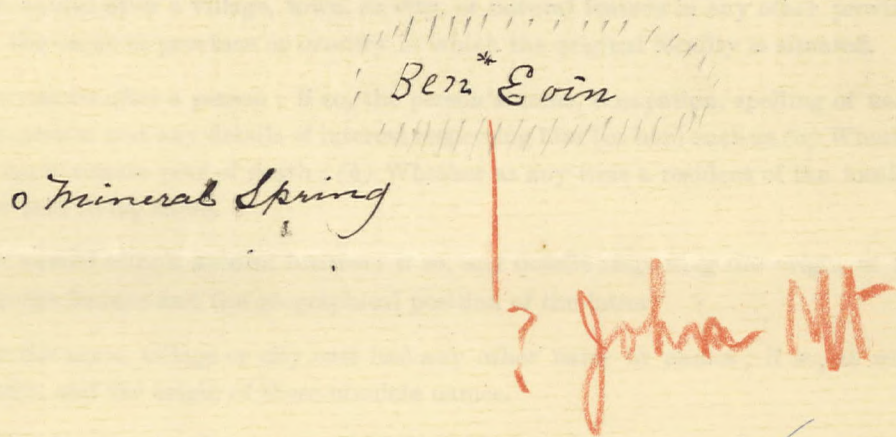 Ben* Eoin
o Mineral Spring
? John Mt